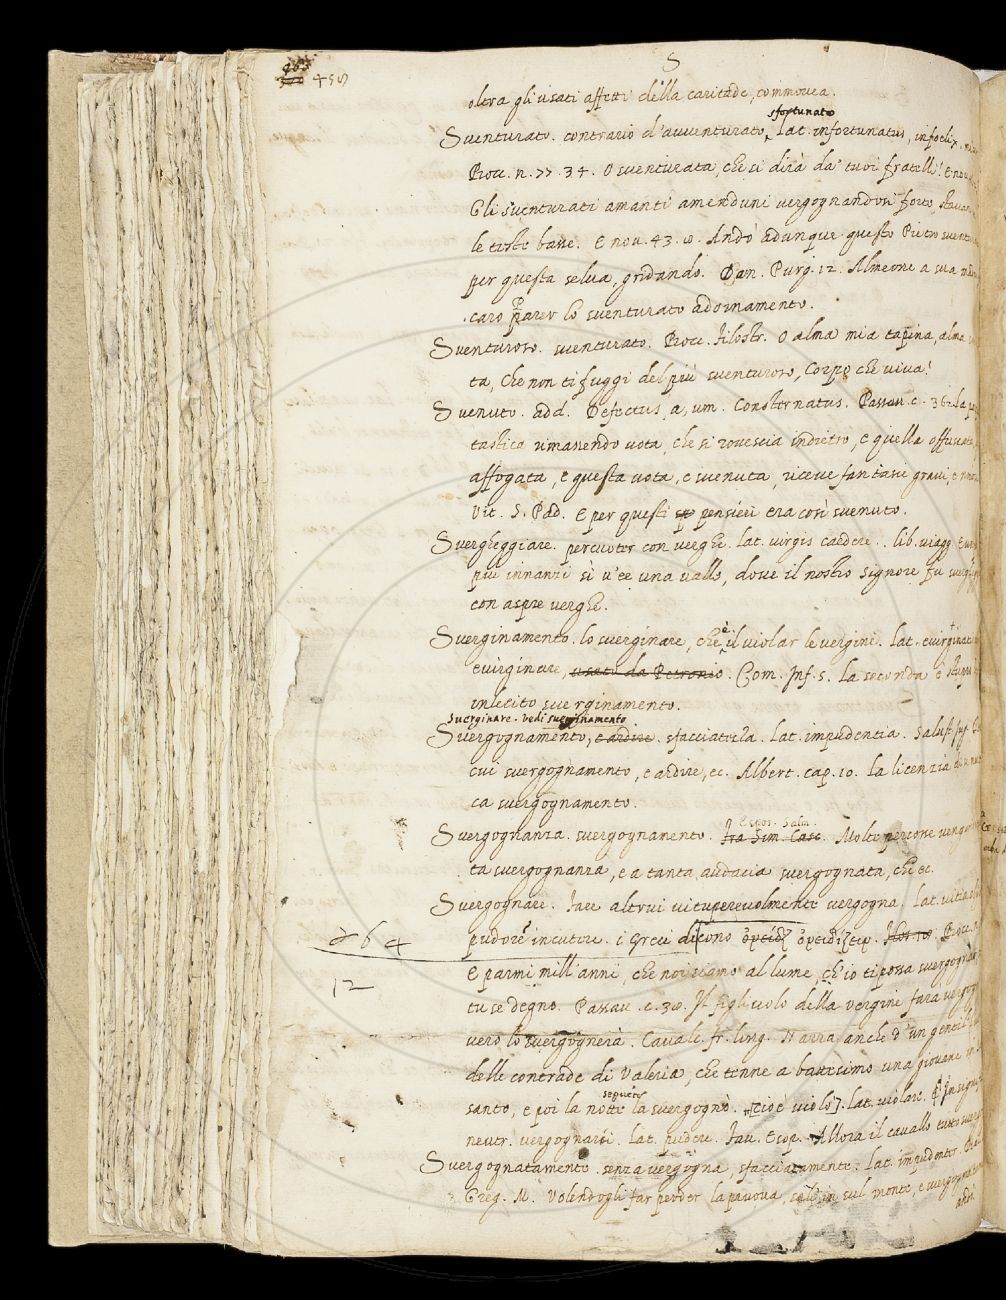 S
463 455
oltra gli usati affetti della caritade, commovea.
sfortunato
Sventurato. contrario d'avventurato, lat. infortunatus, infelix.
Bocc. n. 77. 34. O sventurata, che si dirà da' tuoi fratelli! E nov.
Gli sventurati amanti amenduni vergognandosi forte, stavan
le teste basse. E nov. 43. 8. Andò adunque questo Pietro
per questa selva, gridando. Dan. Purg. 12. Almeone a sua
caro parer lo sventurato adornamento.
Sventuroso. sventurato. Bocc. Filostr. O alma mia tapina, alma
ta, che non ti fuggi del più sventuroso, Corpo che viva!
Svenuto. add. Defectus, a, um. Consternatus. Passav. c. 362. la
tastica rimanendo vota, che si rovescia indietro, e quella offuscata,
affogata, e questa vota, e svenuta, riceve fantasie gravi, e
Vit. S. Pad. E per questi pensieri era così svenuto.
Svergheggiare. percuoter con verghe. lat. virgis caedere. lib. viagg.
più innanzi sì v'ee una valle, dove il nostro Signore fu
con aspre verghe.
Sverginamento. lo sverginare, che è il violar le vergini. lat.
evirginare, usato da Petronio. Com. Inf. 5. La seconda è
inlecito sverginamento.
sverginare. vedi sverginamento
Svergognamento, e ardire. sfacciatezza. lat. impudentia. Salust.
cui svergognamento, e ardire, ec. Albert. cap. 10. La licenzia
ca svergognamento.
Espos. Salm.
Svergognanza. svergognamento. Fra Sim. Casc. Molte persone
ta svergognanza, e a tanta audacia svergognata, che ec.
Svergognare. Fare altrui vituperevolmente vergogna. Lat.
264
pudorem incutere. i Greci dicono ὀνειδίζειν. Bocc.
12
E parmi mill'anni, che noi siamo al lume, ch'io ti possa
tu se degno. Passav. c. 38. Il figliuolo della vergine farà
vero lo svergognerà. Cavalc. fr. ling. Narra anche d'un
delle contrade di Valeria, che tenne a battesimo una giovane
seguente
santo, e poi la notte la svergognò. [cioè violò]. Lat. violare.
neutr. vergognarsi. Lat. pudere. Fav. Esop. Allora il cavallo tutto
Svergognatamente. senza vergogna, sfacciatamente. Lat. impudenter.
Greg. M. Volendogli far perder la pauova, salì in sul monte, e